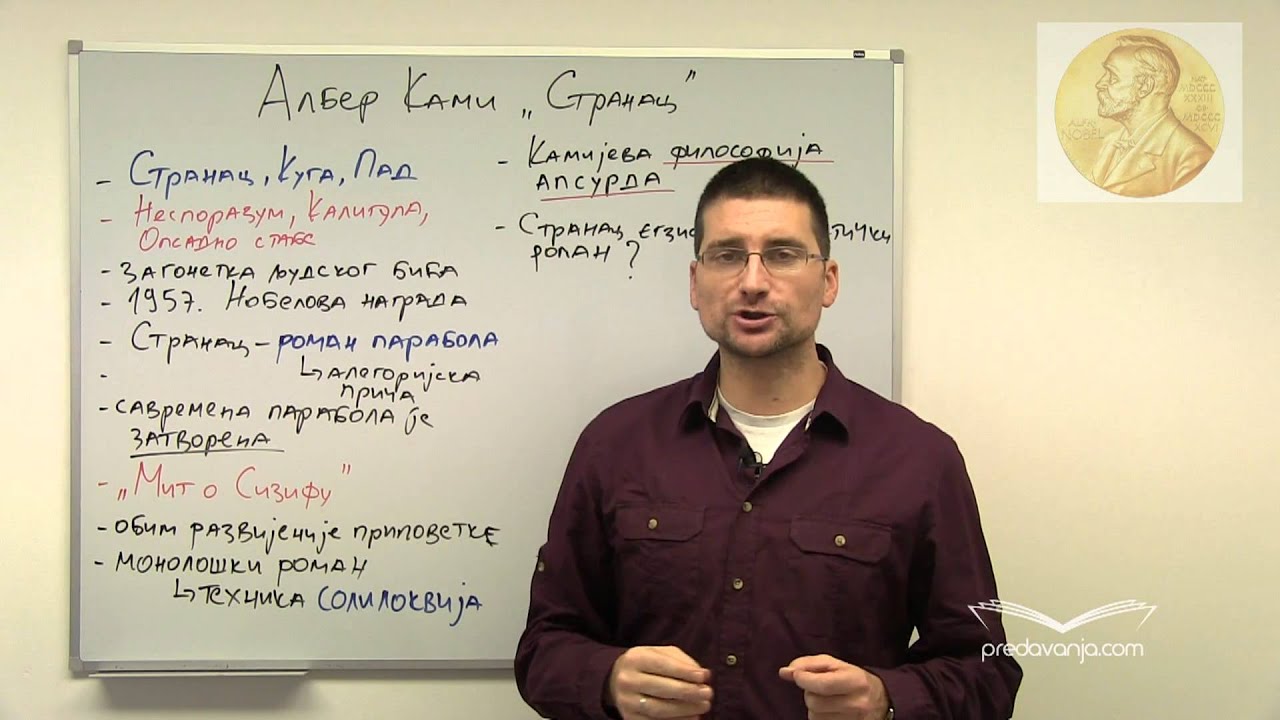 Албер Ками „Странац"
- Странац, Куга, Пад
- Неспоразум, Калигула,
Опсадно стање
- Загонетка људског бића
- 1957. Нобелова награда
- Странац – роман парабола
↳ алегоријска
прича
-
- савремена парабола је
затворена
- „Мит о Сизифу"
- обим развијеније приповетке
- монолошки роман
↳ техника солилоквија
- Камијева философија
апсурда
- Странац
роман?
ALFR.
NOBEL
NAT.
MDCCC
XXXIII
OB.
MDCCC
XCVI
predavanja.com